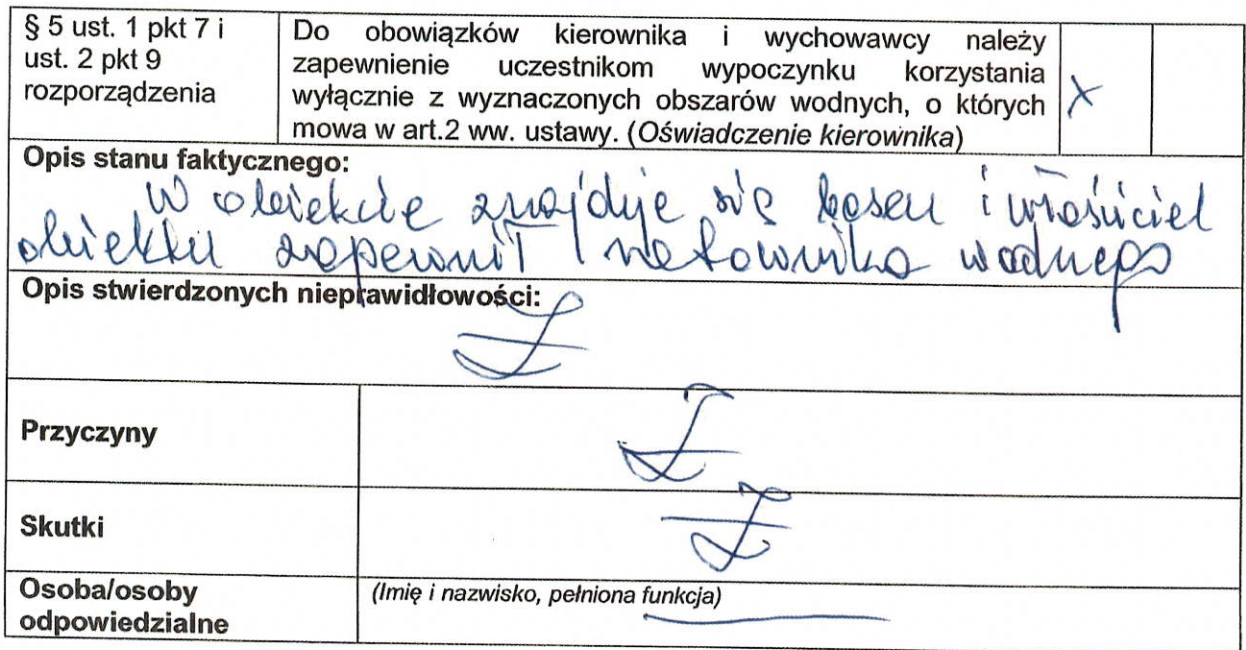 § 5 ust. 1 pkt 7 i
ust. 2 pkt 9
rozporządzenia
Do obowiązków kierownika i wychowawcy należy
zapewnienie uczestnikom wypoczynku korzystania
wyłącznie z wyznaczonych obszarów wodnych, o których
mowa w art.2 ww. ustawy. (Oświadczenie kierownika)
X
Opis stanu faktycznego:
W obiekcie znajduje się basen i właściciel
obiektu zapewnił ratownika wodnego
Opis stwierdzonych nieprawidłowości:
Przyczyny
Skutki
Osoba/osoby
odpowiedzialne
(Imię i nazwisko, pełniona funkcja)